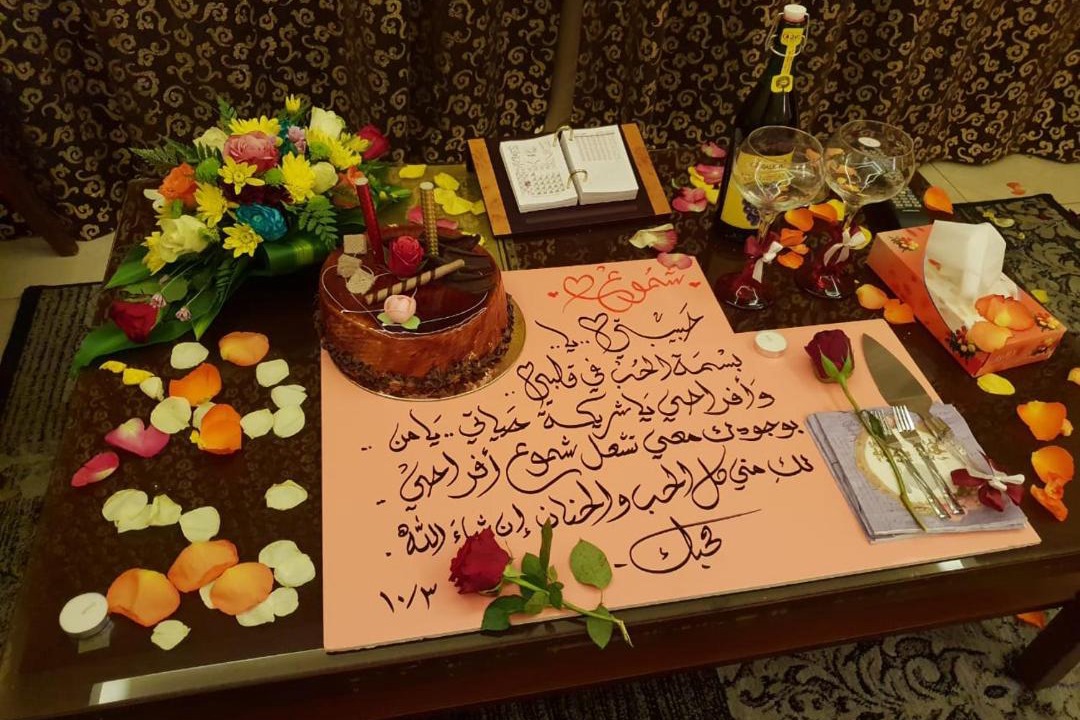 شموع
حبيبتي .. يا ..
بسمة الحب في قلبي ..
وأفراحي يا شريكة حياتي .. يا من ..
بوجودك معي تشعل شموع أفراحي .
لك مني كل الحب والحنان إن شاء الله .
محبك -
١٠/٣